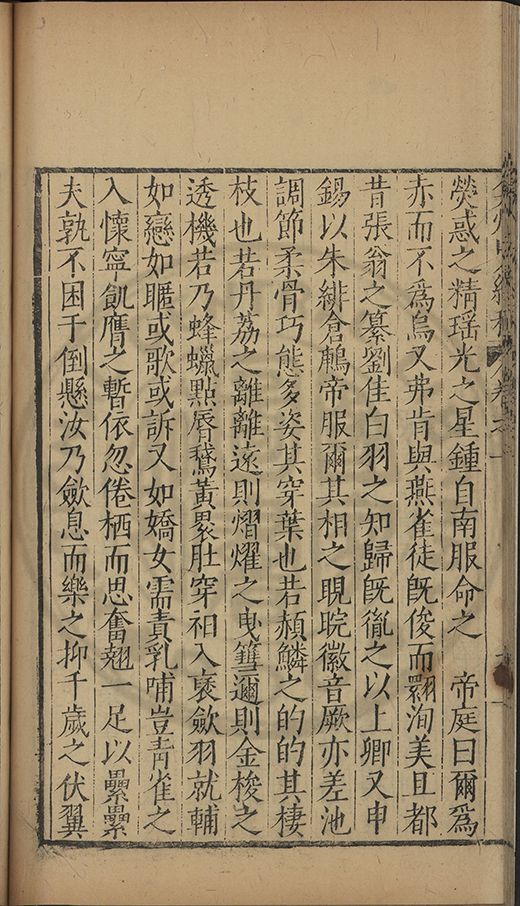 熒惑之精瑶光之星鍾自南服命之　帝庭曰爾爲
赤而不爲烏又弗肯與燕雀徒旣俊而翾洵美且都
昔張翁之纂劉佳白羽之知歸旣徹之以上卿又申
錫以朱緋倉鶊帝服爾其相之睍睆徽音厥亦差池
調節柔骨巧態多姿其穿葉也若赬鱗之的的其棲
枝也若丹荔之離離遠則熠燿之曳篲邇則金梭之
透機若乃蜂蠟點脣鵞黃裹肚穿袖入褒歛羽就輔
如戀如暱或歌或訴又如嬌女需責乳哺豈靑雀之
入懷寧飢鷹之暫依忽倦栖而思奮翹一足以纍纍
夫孰不困于倒懸汝乃歛息而樂之抑千歲之伏翼